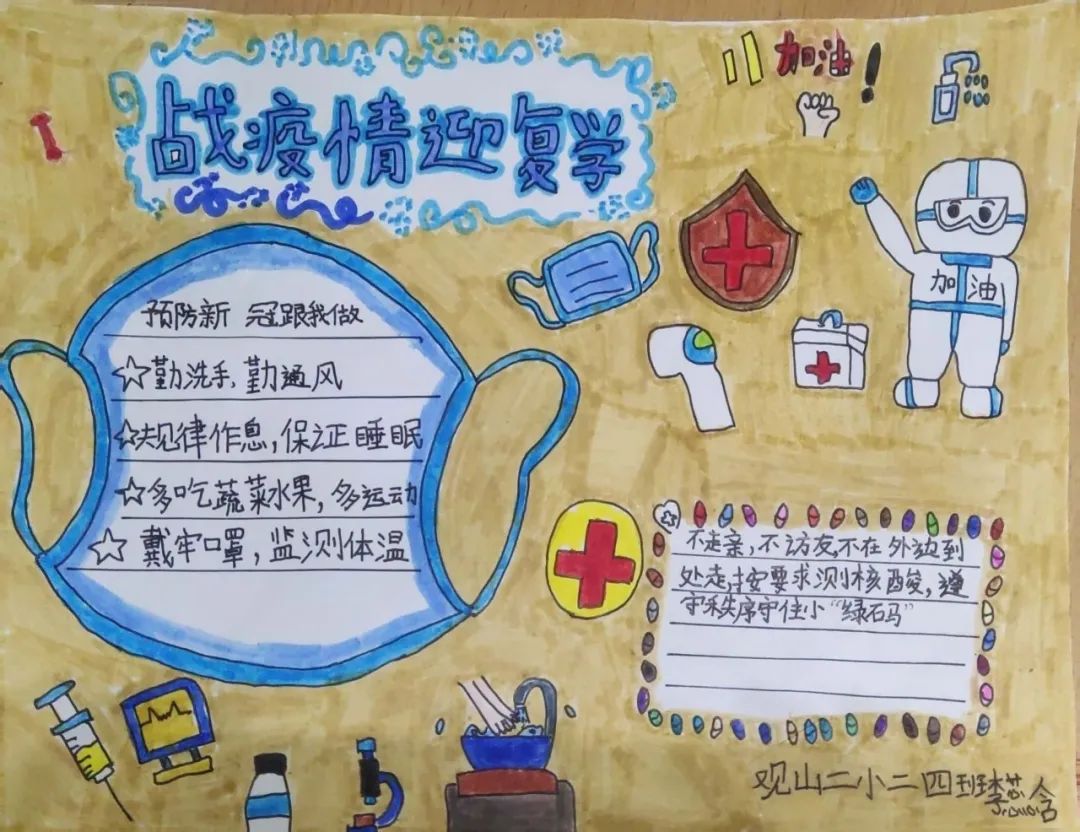 战疫情迎复学
加油!
加油
预防新 冠跟我做
☆勤洗手,勤通风
☆规律作息,保证睡眠
☆多吃蔬菜水果,多运动
☆戴牢口罩,监测体温
不走亲,不访友,不在外边到
处走,按要求测核酸,遵
守秩序守住小“绿码”
观山二小二四班李芯含